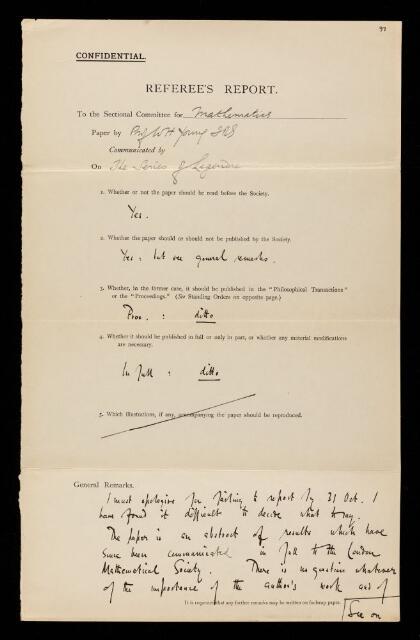 97
CONFIDENTIAL.
REFEREE'S REPORT.
To the Sectional Committee for Mathematics
Paper by Prof W H Young FRS
Communicated by
On The Series of Legendre
1. Whether or not the paper should be read before the Society.
Yes.
2. Whether the paper should or should not be published by the Society.
Yes : but see general remarks.
3. Whether, in the former case, it should be published in the "Philosophical Transactions"
or the "Proceedings." (See Standing Orders on opposite page.)
Proc. : ditto
4. Whether it should be published in full or only in part, or whether any material modifications
are necessary.
In full : ditto
5. Which illustrations, if any, accompanying the paper should be reproduced.
General Remarks.
I must apologise for failing to report by 21 Oct. I
have found it difficult to decide what to say.
The paper is an abstract of results which have
since been communicated in full to the London
Mathematical Society. There is no question whatever
of the importance of the author's work and of
It is requested that any further remarks may be written on foolscap paper.
See on